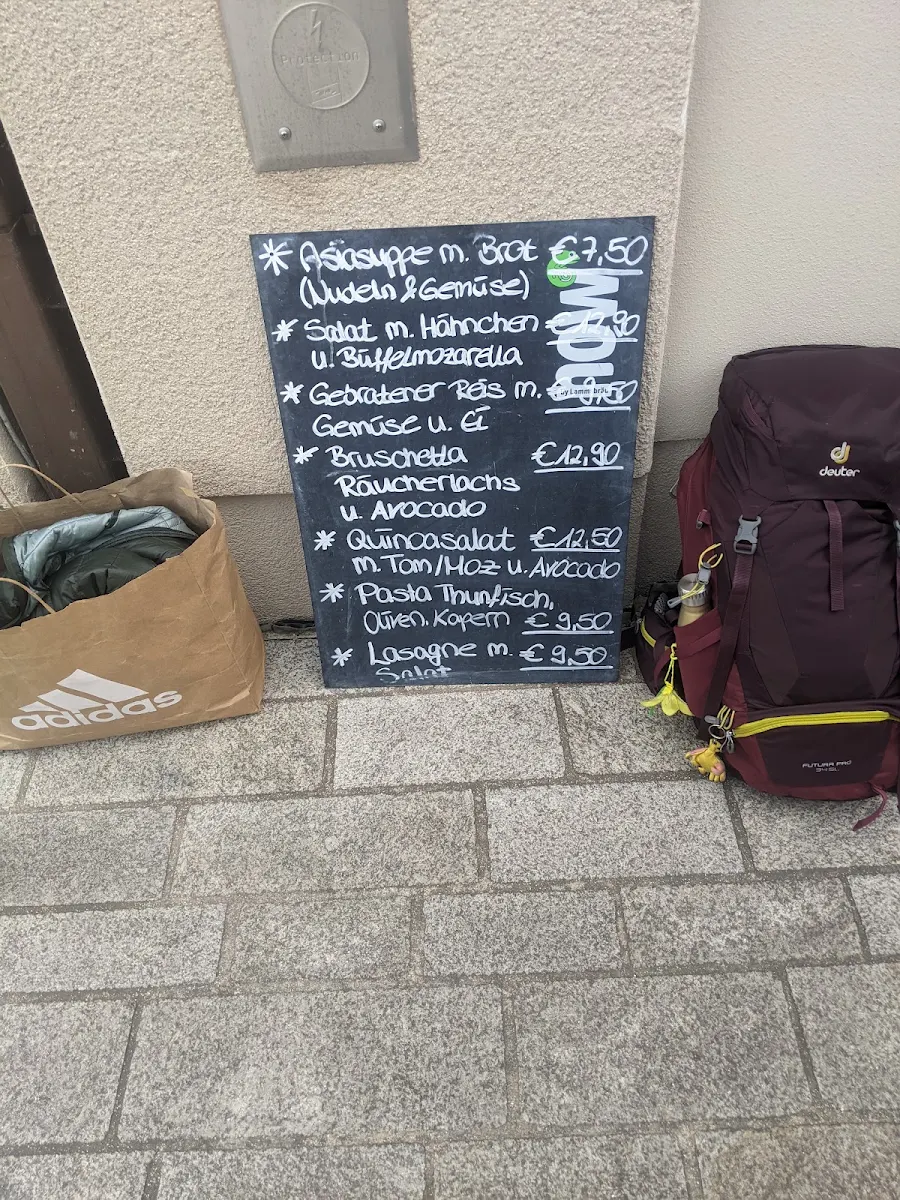 Protection
* Asiasuppe m. Brot €7,50
(Nudeln & Gemüse)
* Salat m. Hähnchen €12,90
u. Büffelmozarella
* Gebratener Reis m. €9,50
Gemüse u. Ei
* Bruschetta €12,90
Räucherlachs
u. Avocado
* Quinoasalat €12,50
m. Tom/Moz u. Avocado
* Pasta Thunfisch,
Oliven, Kapern €9,50
* Lasagne m. €9,50
Salat
by Lammsbräu
adidas
deuter
FUTURA PRO
34 SL